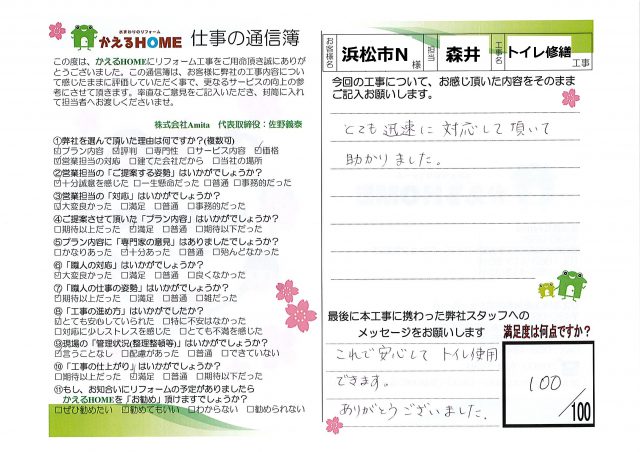 水まわりのリフォーム
かえるHOME 仕事の通信簿
この度は、かえるHOMEにリフォーム工事をご用命頂き誠にありが
とうございました。この通信簿は、お客様に弊社の工事内容につい
て感じたままに評価していただく事で、更なるサービスの向上の参
考にさせて頂きます。率直なご意見をご記入いただき、封筒に入れ
て担当者へお渡しくださいませ。
株式会社Amita 代表取締役:佐野義泰
①弊社を選んで頂いた理由は何ですか?(複数可)
☑プラン内容 ☑評判 □専門性 □サービス内容 ☑価格
☑営業担当の対応 □建てた会社だから □当社の場所
②営業担当の「ご提案する姿勢」はいかがでしょうか?
☑十分誠意を感じた □一生懸命だった □普通 □事務的だった
③営業担当の「対応」はいかがでしょうか?
☑大変良かった □満足 □普通 □事務的だった
④ご提案させて頂いた「プラン内容」はいかがでしょうか?
□期待以上だった ☑満足 □普通 □期待以下だった
⑤プラン内容に「専門家の意見」はありましたでしょうか?
□かなりあった ☑十分あった □普通 □殆んどなかった
⑥「職人の対応」はいかがでしょうか?
☑大変良かった □満足 □普通 □良くなかった
⑦「職人の仕事の姿勢」はいかがでしょうか?
☑期待以上だった □満足 □普通 □雑だった
⑧「工事の進め方」はいかがでしたか?
☑とても安心していられた □特に不安はなかった
□対応に少しストレスを感じた □とても不満を感じた
⑨現場の「管理状況(整理整頓等)」はいかがでしょうか?
☑言うことなし □配慮があった □普通 □できていない
⑩「工事の仕上がり」はいかがでしょうか?
□期待以上だった ☑満足 □普通 □期待以下だった
⑪もし、お知合いにリフォームの予定がありましたら
かえるHOMEを「お勧め」頂けますでしょうか?
□ぜひ勧めたい ☑勧めてもいい □わからない □勧められない
お客様名 浜松市N 様 担当 森井 工事名 トイレ修繕 工事
今回の工事について、お感じ頂いた内容をそのまま
ご記入お願いします。
とても迅速に対応して頂いて
助かりました。
最後に本工事に携わった弊社スタッフへの
メッセージをお願いします
これで安心してトイレ使用
できます。
ありがとうございました。
満足度は何点ですか?
100
/100